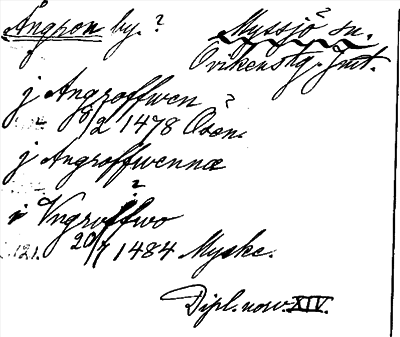 Ängron by. ? Myssjö ? sn.
Ovikens tg. Jmt.
j Angroffwen
8/2 1478 ? Åsen.
j Angroffwennæ
?
i Vngroffwo
121. 20/7 1484 Myske.
Dipl. norv. XIV.